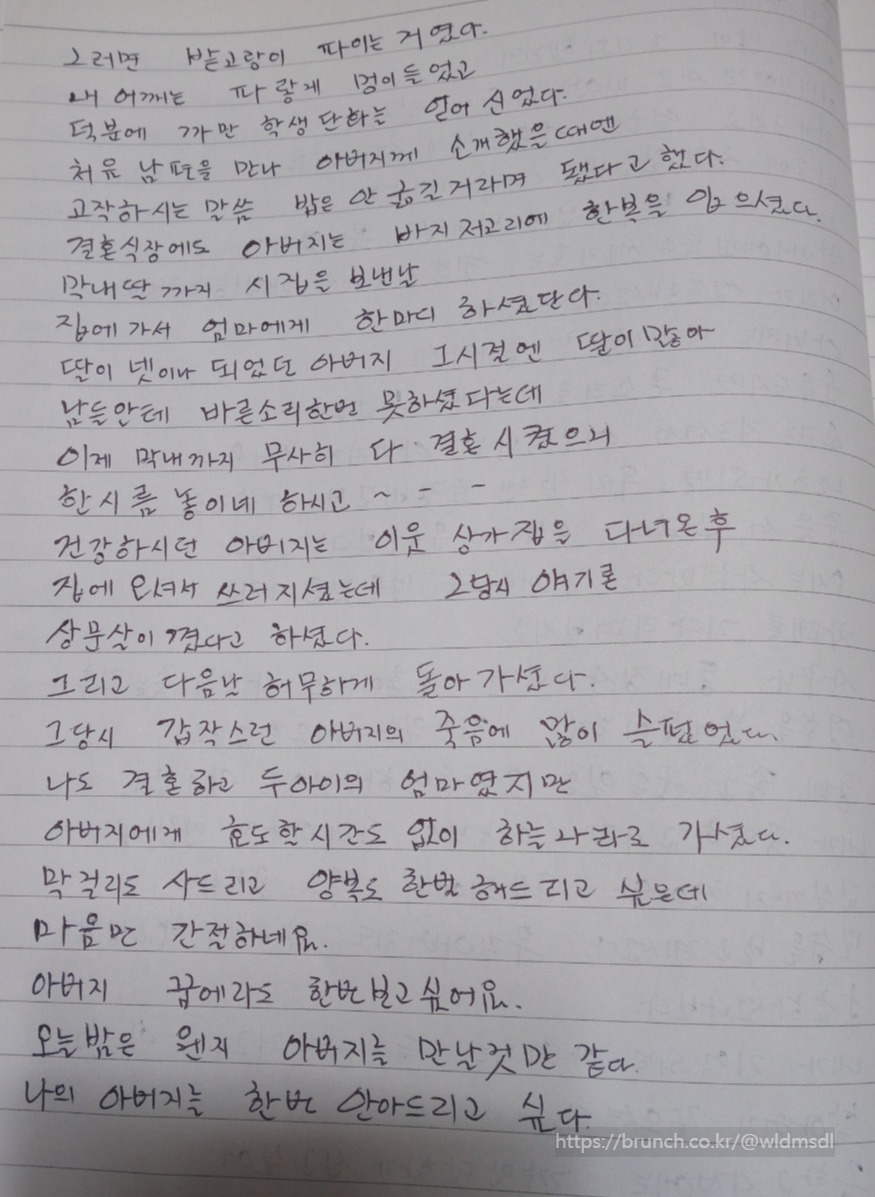 그러면 밭고랑이 파이는 거였다.
내 어깨는 파랗게 멍이들었고
덕분에 까만 학생단화는 얻어 신었다.
처음 남편을 만나 아버지께 소개했을때엔
고작하시는 말씀 밥은 안 굶긴거라며 됐다고 했다.
결혼식장에도 아버지는 바지저고리에 한복을 입으셨다.
막내딸까지 시집을 보낸날
집에가서 엄마에게 한마디 하셨단다.
딸이 넷이나 되었던 아버지 그시절엔 딸이 많아
남들안테 바른소리한번 못하셨다는데
이제 막내까지 무사히 다 결혼시켰으니
한시름 놓이네 하시고 ~ - -
건강하시던 아버지는 이웃 상가집을 다녀온후
집에 오셔서 쓰러지셨는데 그당시 얘기론
상문살이 꼈다고 하셨다.
그리고 다음날 허무하게 돌아가셨다.
그당시 갑작스런 아버지의 죽음에 많이 슬펐었다.
나도 결혼하고 두아이의 엄마였지만
아버지에게 효도할시간도 없이 하늘나라로 가셨다.
막걸리도 사드리고 양복도 한번 해드리고 싶은데
마음만 간절하네요.
아버지 꿈에라도 한번보고싶어요.
오늘밤은 웬지 아버지를 만날것만 같다.
나의 아버지를 한번 안아드리고 싶다.
https://brunch.co.kr/@wldmsdl